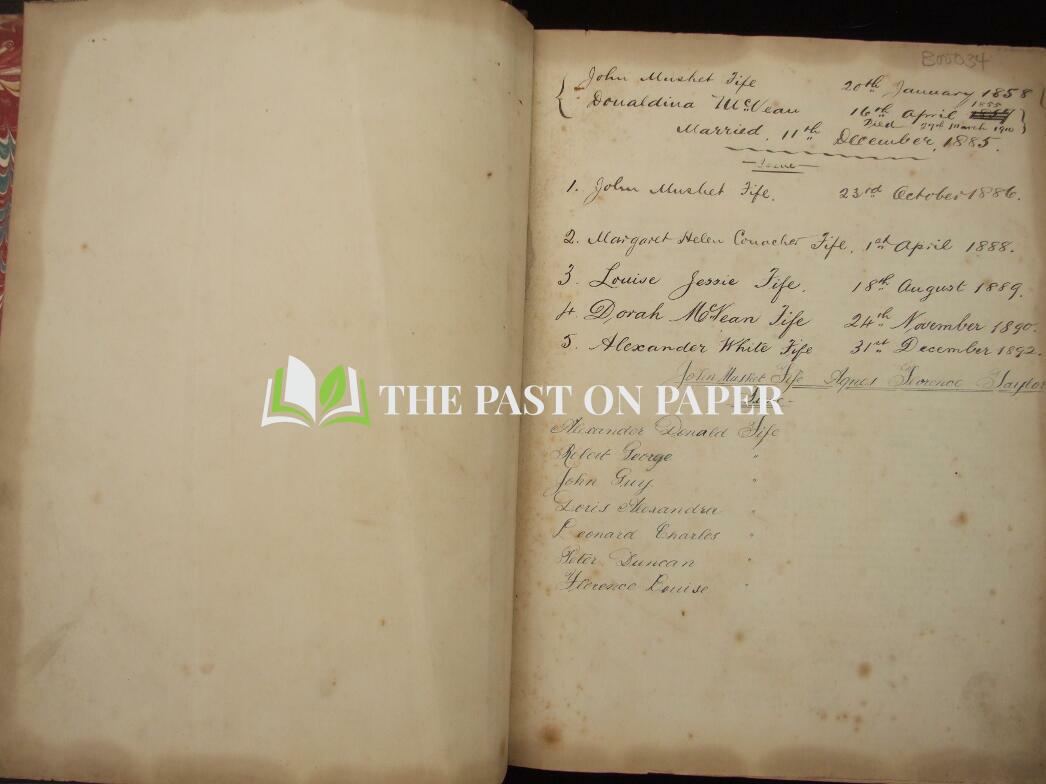 B00034
John Mushet Fife 20th January 1858
Donaldina McVean 16th April 1855
Died 29th March 1910
Married, 11th December, 1885.
Issue
1. John Mushet Fife. 23rd October 1886.
2. Margaret Helen Conacher Fife. 1st April 1888.
3. Louise Jessie Fife. 18th August 1889.
4. Dorah McVean Fife 24th November 1890.
5. Alexander White Fife 31st December 1892.
John Mushet Fife Agnes Florence Taylor
Issue
THE PAST ON PAPER
Alexander Donald Fife
Robert George "
John Guy "
Doris Alexandra "
Leonard Charles "
Peter Duncan "
Florence Louise "